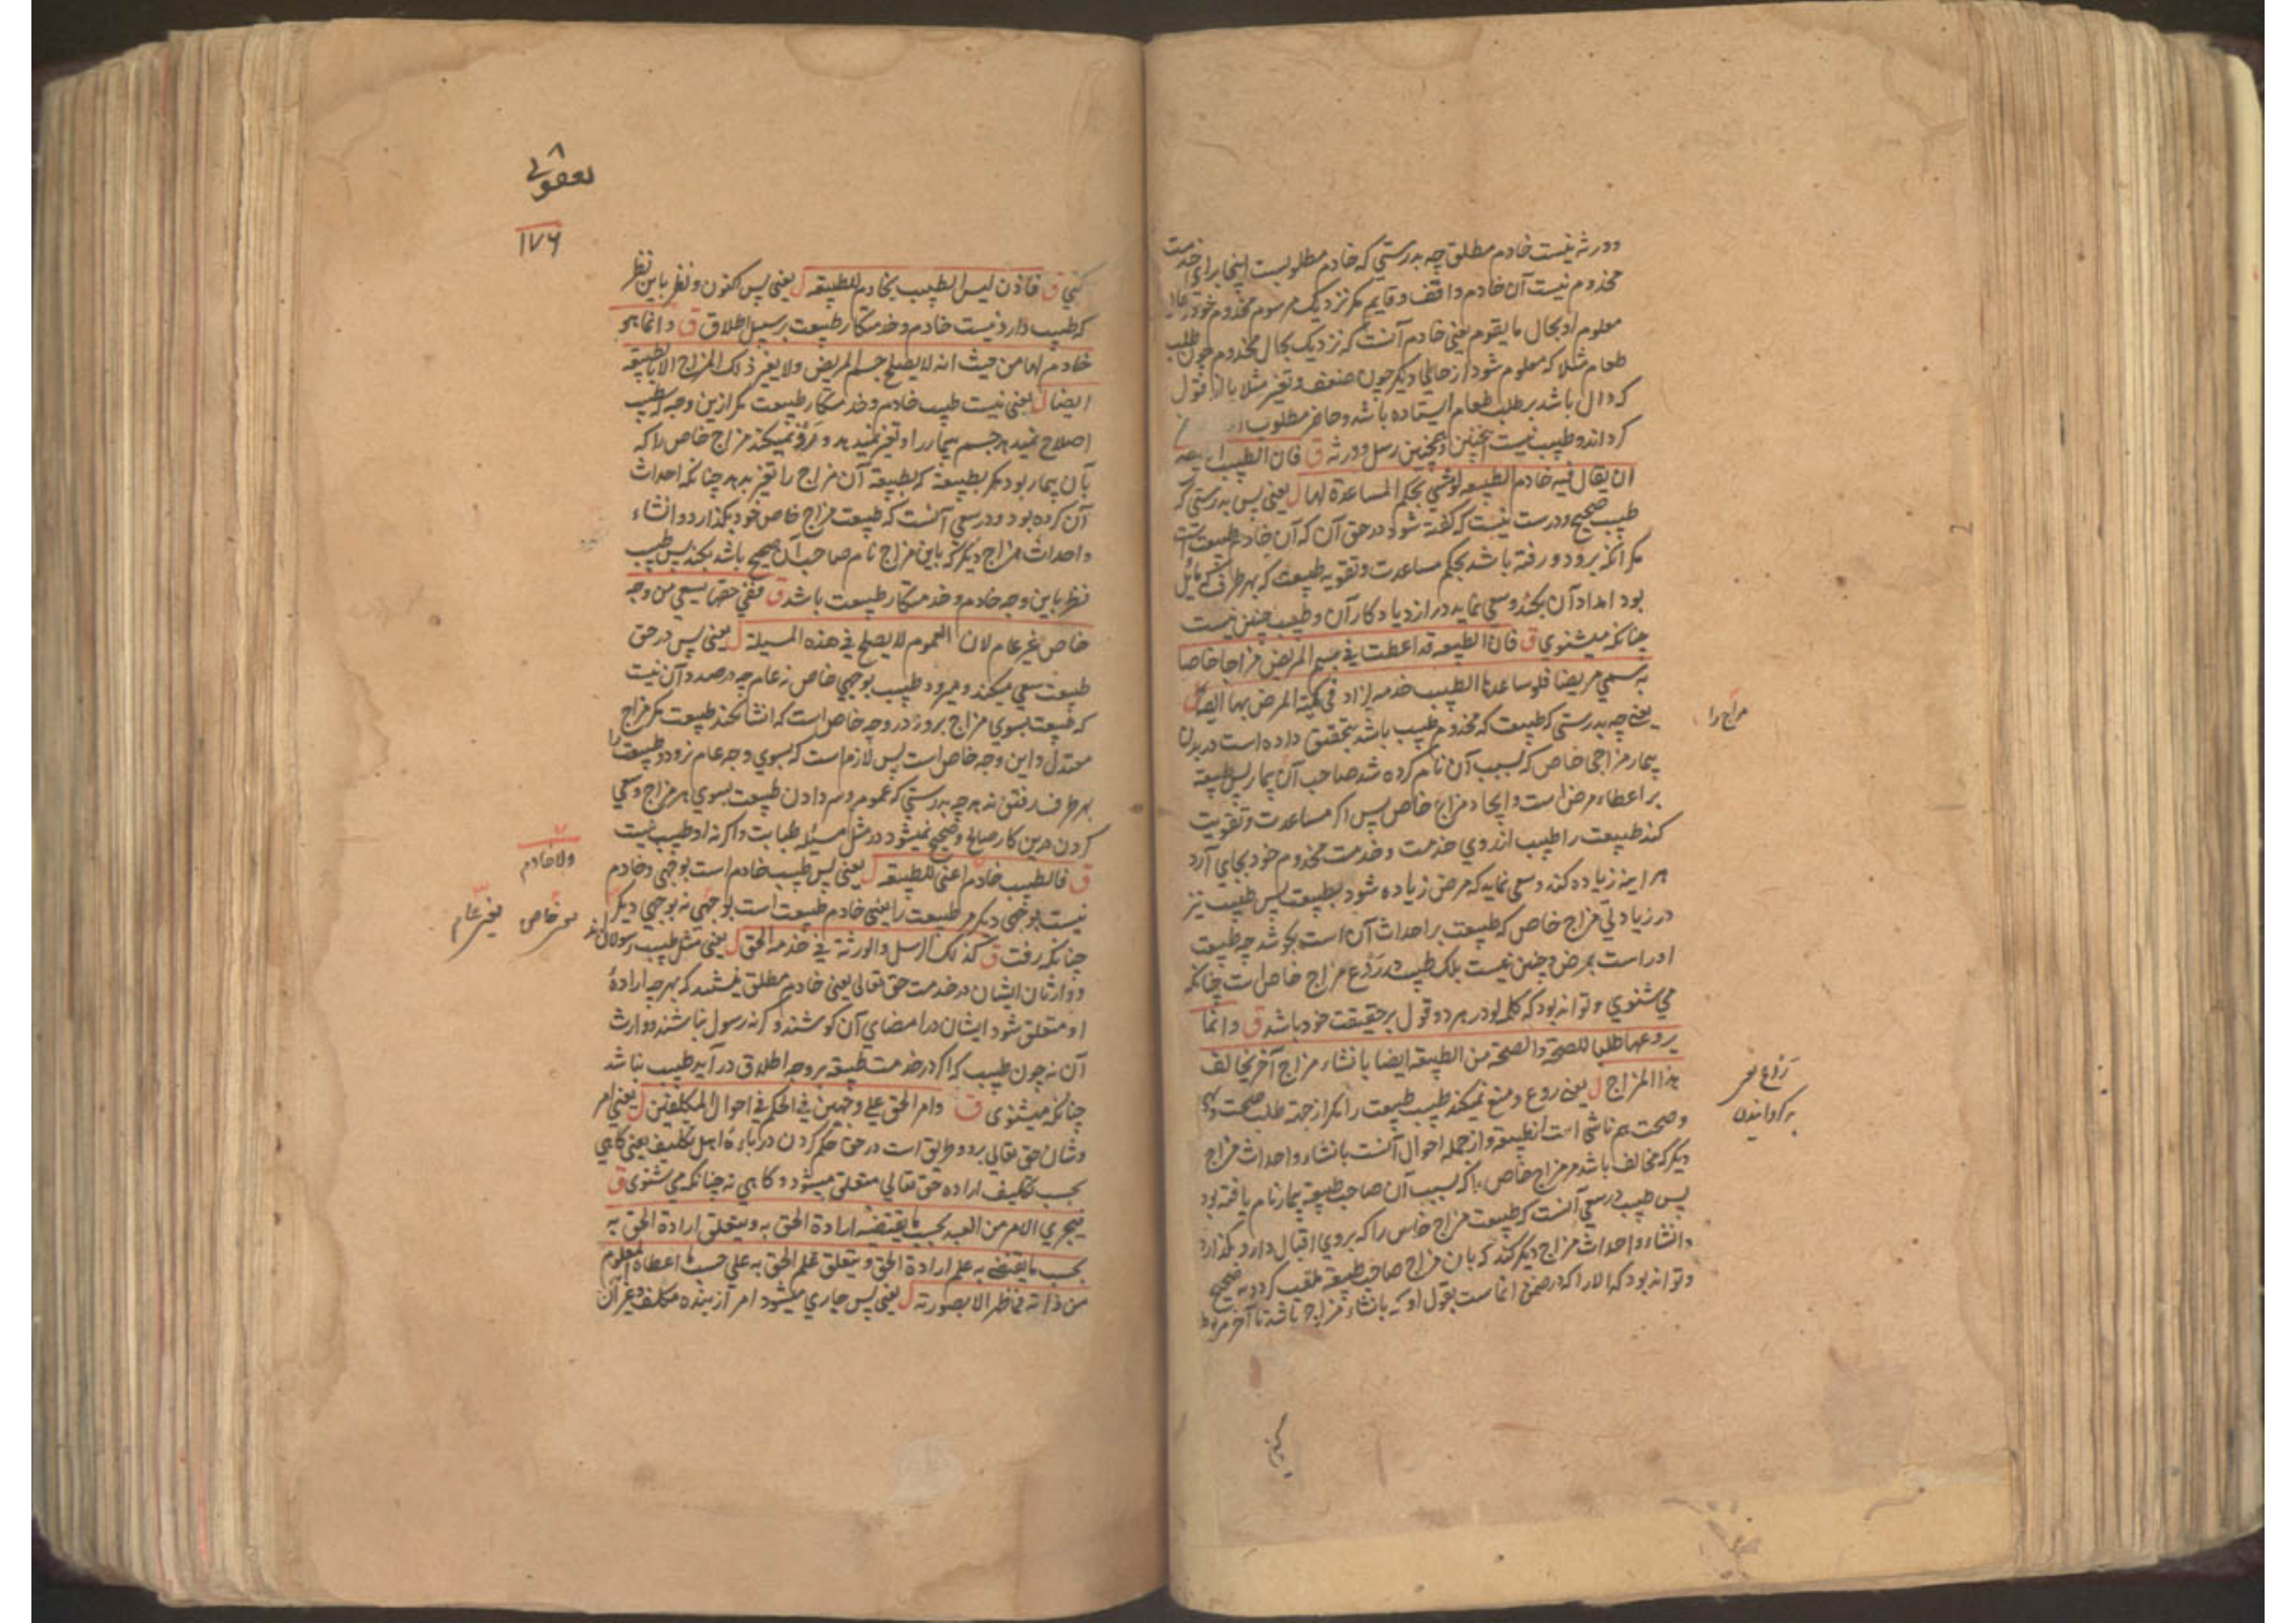 دورثه نیست خادم مطلق چه بدرستی که خادم مطلوبست اینجا برای خدمت
مخدوم نیست آن خادم واقف و قایم مکر نزدیک مرسوم مخدوم خود را
معلوم او بحال ما یقوم یعنی خادم آنست که نزدیک بحال مخدوم چون طلب
طعام مثلا که معلوم شود از حالی دیکر چون ضعف و تغیر مثلا یا از قول
که دال باشد بر طلب طعام ایستاده باشد و حاضر مطلوب
کرداند و طبیب نیست اینچنین و همچنین رسل و ورثه ق فان الطبیب
ان یقال فیه خادم الطبیعه لو مشی بحکم المساعدة لها ل یعنی پس بدرستی که
طبیب صحیح و درست نیست که کفته شود در حق آن که آن خادم طبیعت است
مکر آنکه برود و رفته باشد بحکم مساعدت و تقویه طبیعت که بهر طرف که مایل
بود امداد آن بکند و سعی نماید در ازدیاد کار آن و طبیب چنین نیست
چنانکه میشنوی ق فان الطبیعه قد اعطت فی جسم المریض مزاجا خاصا
به سمی مریضا فلو ساعدها الطبیب خدمه لزاد فی کمیة المرض بها ایضا ل
یعنی چه بدرستی که طبیعت که مخدوم طبیب باشد بتحقیق داده است در بدن
بیمار مزاجی خاص که بسبب آن نام کرده شد صاحب آن بیمار پس طبیعة
بر اعطاء مرض است و ایجاد مزاج خاص پس اکر مساعدت و تقویت
کند طبیعت را طبیب از روی خدمت و خدمت مخدوم خود بجای آرد
هر اینه زیاده کند و سعی نماید که مرض زیاده شود بطبیعت پس طبیب نیز
در زیادتی مزاج خاص که طبیعت بر احداث آن است بکوشد چه طبیعت
ادراست بمرض و چنین نیست بلک طبیب در ردع مزاج خاص است چنانکه
می شنوی و تواند بود که کلمه لو در هر دو قول بر حقیقت خود باشد ق وانما
یردعها طلبا للصحة والصحة من الطبیعة ایضا بانشاء مزاج آخر یخالف
هذا المزاج ل یعنی ردع و منع نمیکند طبیب طبیعت را مکر از جهة طلب صحت
و صحت هم ناشی است از طبیعة و از جمله احوال آنست بانشاء و احداث مزاج
دیکر که مخالف باشد مر مزاج خاص را که بسبب آن صاحب طبیعة بیمار نام یافته بود
پس طبیب در سعی آنست که طبیعت مزاج خاص را که بروی اقبال دارد بکذارد
و انشاء و احداث مزاج دیکر کند که بان مزاج صاحب طبیعة ملقب کردد به صحیح
و تواند بود که الا را که در ضمن انماست بقول او که بانشاء مزاج باشد تا آخر مربوط
مزاج را
ردع یعنی
به کردانیدن
یعقوبی
۱۷۶
کنی ق فاذن لیس الطبیب بخادم للطبیعه ل یعنی پس اکنون و نظر باین نظر
که طبیب دارد نیست خادم و خدمتکار طبیعت بر سبیل اطلاق ق وانما هو
خادم لها من حیث انه لا یصلح جسم المریض ولا یغیر ذلک المزاج الا بالطبیعة
ایضا ل یعنی نیست طبیب خادم و خدمتکار طبیعت مکر ازین وجه که طبیب
اصلاح نمیدهد جسم بیمار را و تغیر نمیدهد و نمیکند مزاج خاص را که
بآن بیمار بود مکر بطبیعة که بطبیعة آن مزاج را تغیر بدهد چنانکه احداث
آن کرده بود و در سعی آنست که طبیعت مزاج خاص خود بکذارد و انشاء
و احداث مزاج دیکر که باین مزاج نام صاحب آن صحیح باشد بکند پس طبیب
نظر باین وجه خادم و خدمتکار طبیعت باشد ق ففی حقها یسعی من وجه
خاص غیر عام لان العموم لا یصلح فی هذه المسیلة ل یعنی پس در حق
طبیعت سعی میکند و میرود طبیب بوجهی خاص نه عام چه در صدد آن نیست
که طبیعت بسوی مزاج برود در وجه خاص است که انشا نکند طبیعت مکر مزاج
معتدل و این وجه خاص است پس لازم است که بسوی وجه عام نرود و طبیعت را
بهر طرف رفتن ندهد چه بدرستی که عموم و سر دادن طبیعت بسوی هر مزاج و سعی
کردن درین کار صالح و صحیح نمیشود در مثل مسیله طبابت و اکر نه او طبیب نیست
ق فالطبیب خادم اعنی للطبیعه ل یعنی پس طبیب خادم است بوجهی و خادم
نیست بوجهی دیکر مر طبیعت را یعنی خادم طبیعت است بوجهی نه بوجهی دیکر
چنانکه رفت ق کذلک الرسل والورثة فی خدمه الحق ل یعنی مثل طبیب رسولان اند
و وارثان ایشان در خدمت حق تعالی یعنی خادم مطلق نیستند که بهر چه ارادهٔ
او متعلق شود ایشان در امضای آن کوشند و کرنه رسول نباشند و وارث
آن نه چون طبیب که اکر در خدمت طبیعة بر وجه اطلاق در آید طبیب نباشد
چنانکه میشنوی ق وامر الحق علی وجهین فی الحکم فی احوال المکلفین ل یعنی امر
و شان حق تعالی بر دو طریق است در حق حکم کردن در باره اهل تکلیف یعنی کاهی
بحسب تکلیف اراده حق تعالی متعلق میشود و کاهی نه چنانکه می شنوی ق
فیجری الامر من العبد بحسب ما یقتضیه ارادة الحق به ویتعلق ارادة الحق به
بحسب ما یقتضی به علم ارادة الحق ویتعلق علم الحق به علی حسب ما اعطاه المعلوم
من ذاته فما ظهر الا بصورته ل یعنی پس جاری میشود امر از بنده مکلف
ولا خادم
بوجه خاص
بغیر عام